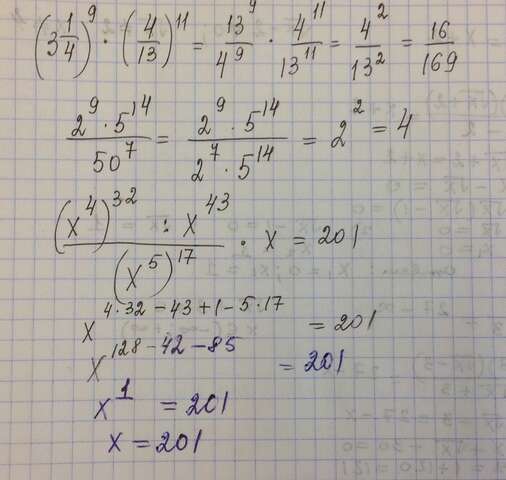 (3 1/4)^9 · (4/13)^11 = 13^9/4^9 · 4^11/13^11 = 4^2/13^2 = 16/169
2^9 · 5^14 / 50^7 = 2^9 · 5^14 / 2^7 · 5^14 = 2^2 = 4
(x^4)^32 : x^43 / (x^5)^17 · x = 201
x^4·32-43+1-5·17 = 201
x^128-42-85 = 201
x^1 = 201
x = 201